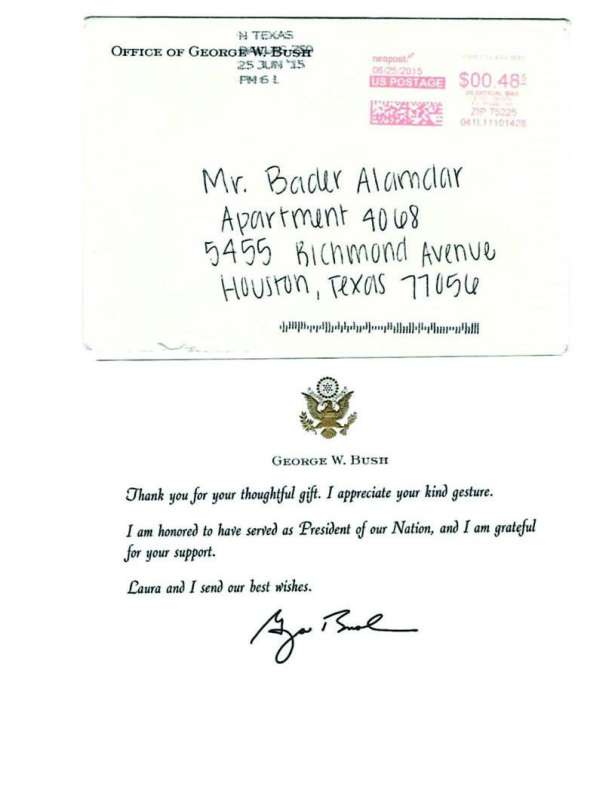 N TEXAS
OFFICE OF GEORGE W. BUSH
DALLAS 750
25 JUN '15
PM 6 L
neopost
06/25/2015
US POSTAGE
$00.48⁵
ZIP 75225
041L11101428
Mr. Bader Alamdar
Apartment 4068
5455 Richmond Avenue
Houston, Texas 77056
GEORGE W. BUSH
Thank you for your thoughtful gift. I appreciate your kind gesture.
I am honored to have served as President of our Nation, and I am grateful
for your support.
Laura and I send our best wishes.